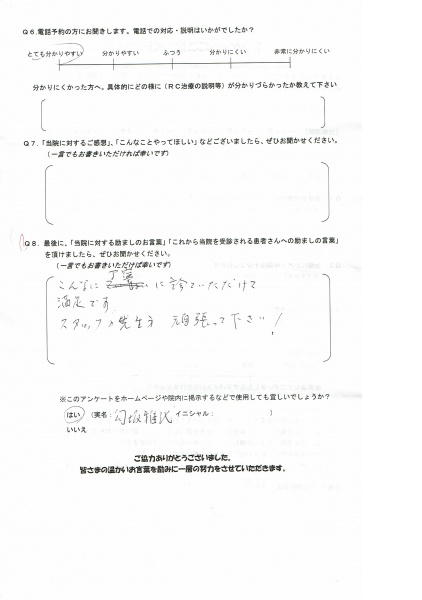 Q6.電話予約の方にお聞きします。電話での対応・説明はいかがでしたか？
とても分かりやすい 分かりやすい ふつう 分かりにくい 非常に分かりにくい
分かりにくかった方へ。具体的にどの様に（RC治療の説明等）が分かりづらかったか教えて下さい
Q7.「当院に対するご感想」、「こんなことやってほしい」などございましたら、ぜひお聞かせください。
（一言でもお書きいただければ幸いです）
Q8. 最後に、「当院に対する励ましのお言葉」「これから当院を受診される患者さんへの励ましの言葉」
を頂けましたら、ぜひお聞かせください。
（一言でもお書きいただけば幸いです）
こんなに丁寧に診ていただけて
満足です
スタッフ 先生方 頑張って下さい！
※このアンケートをホームページや院内に掲示するなどで使用しても宜しいでしょうか？
はい （実名： イニシャル： ）
いいえ
ご協力ありがとうございました。
皆さまの温かいお言葉を励みに一層の努力をさせていただきます。